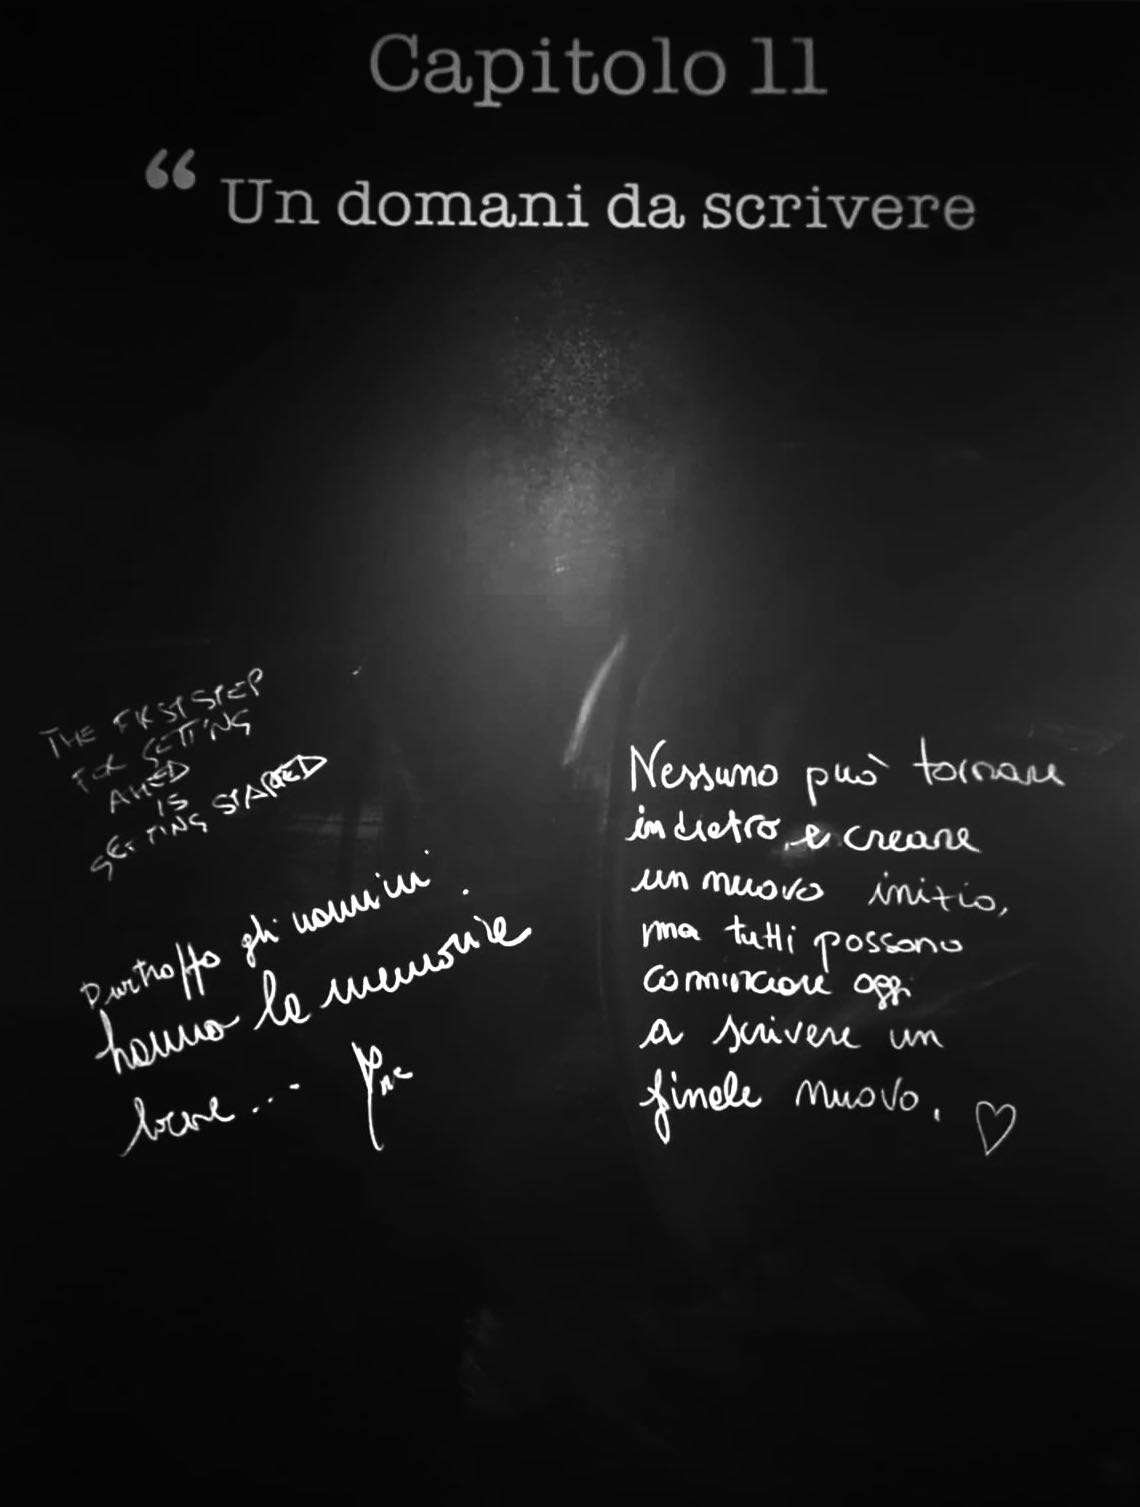 Capitolo 11
“ Un domani da scrivere
THE FIRST STEP
FOR GETTING
AHED
IS
GETTING STARTED
Purtroppo gli uomini
hanno la memoria
breve...
Nessuno può tornare
indietro e creare
un nuovo inizio,
ma tutti possono
cominciare oggi
a scrivere un
finale nuovo.